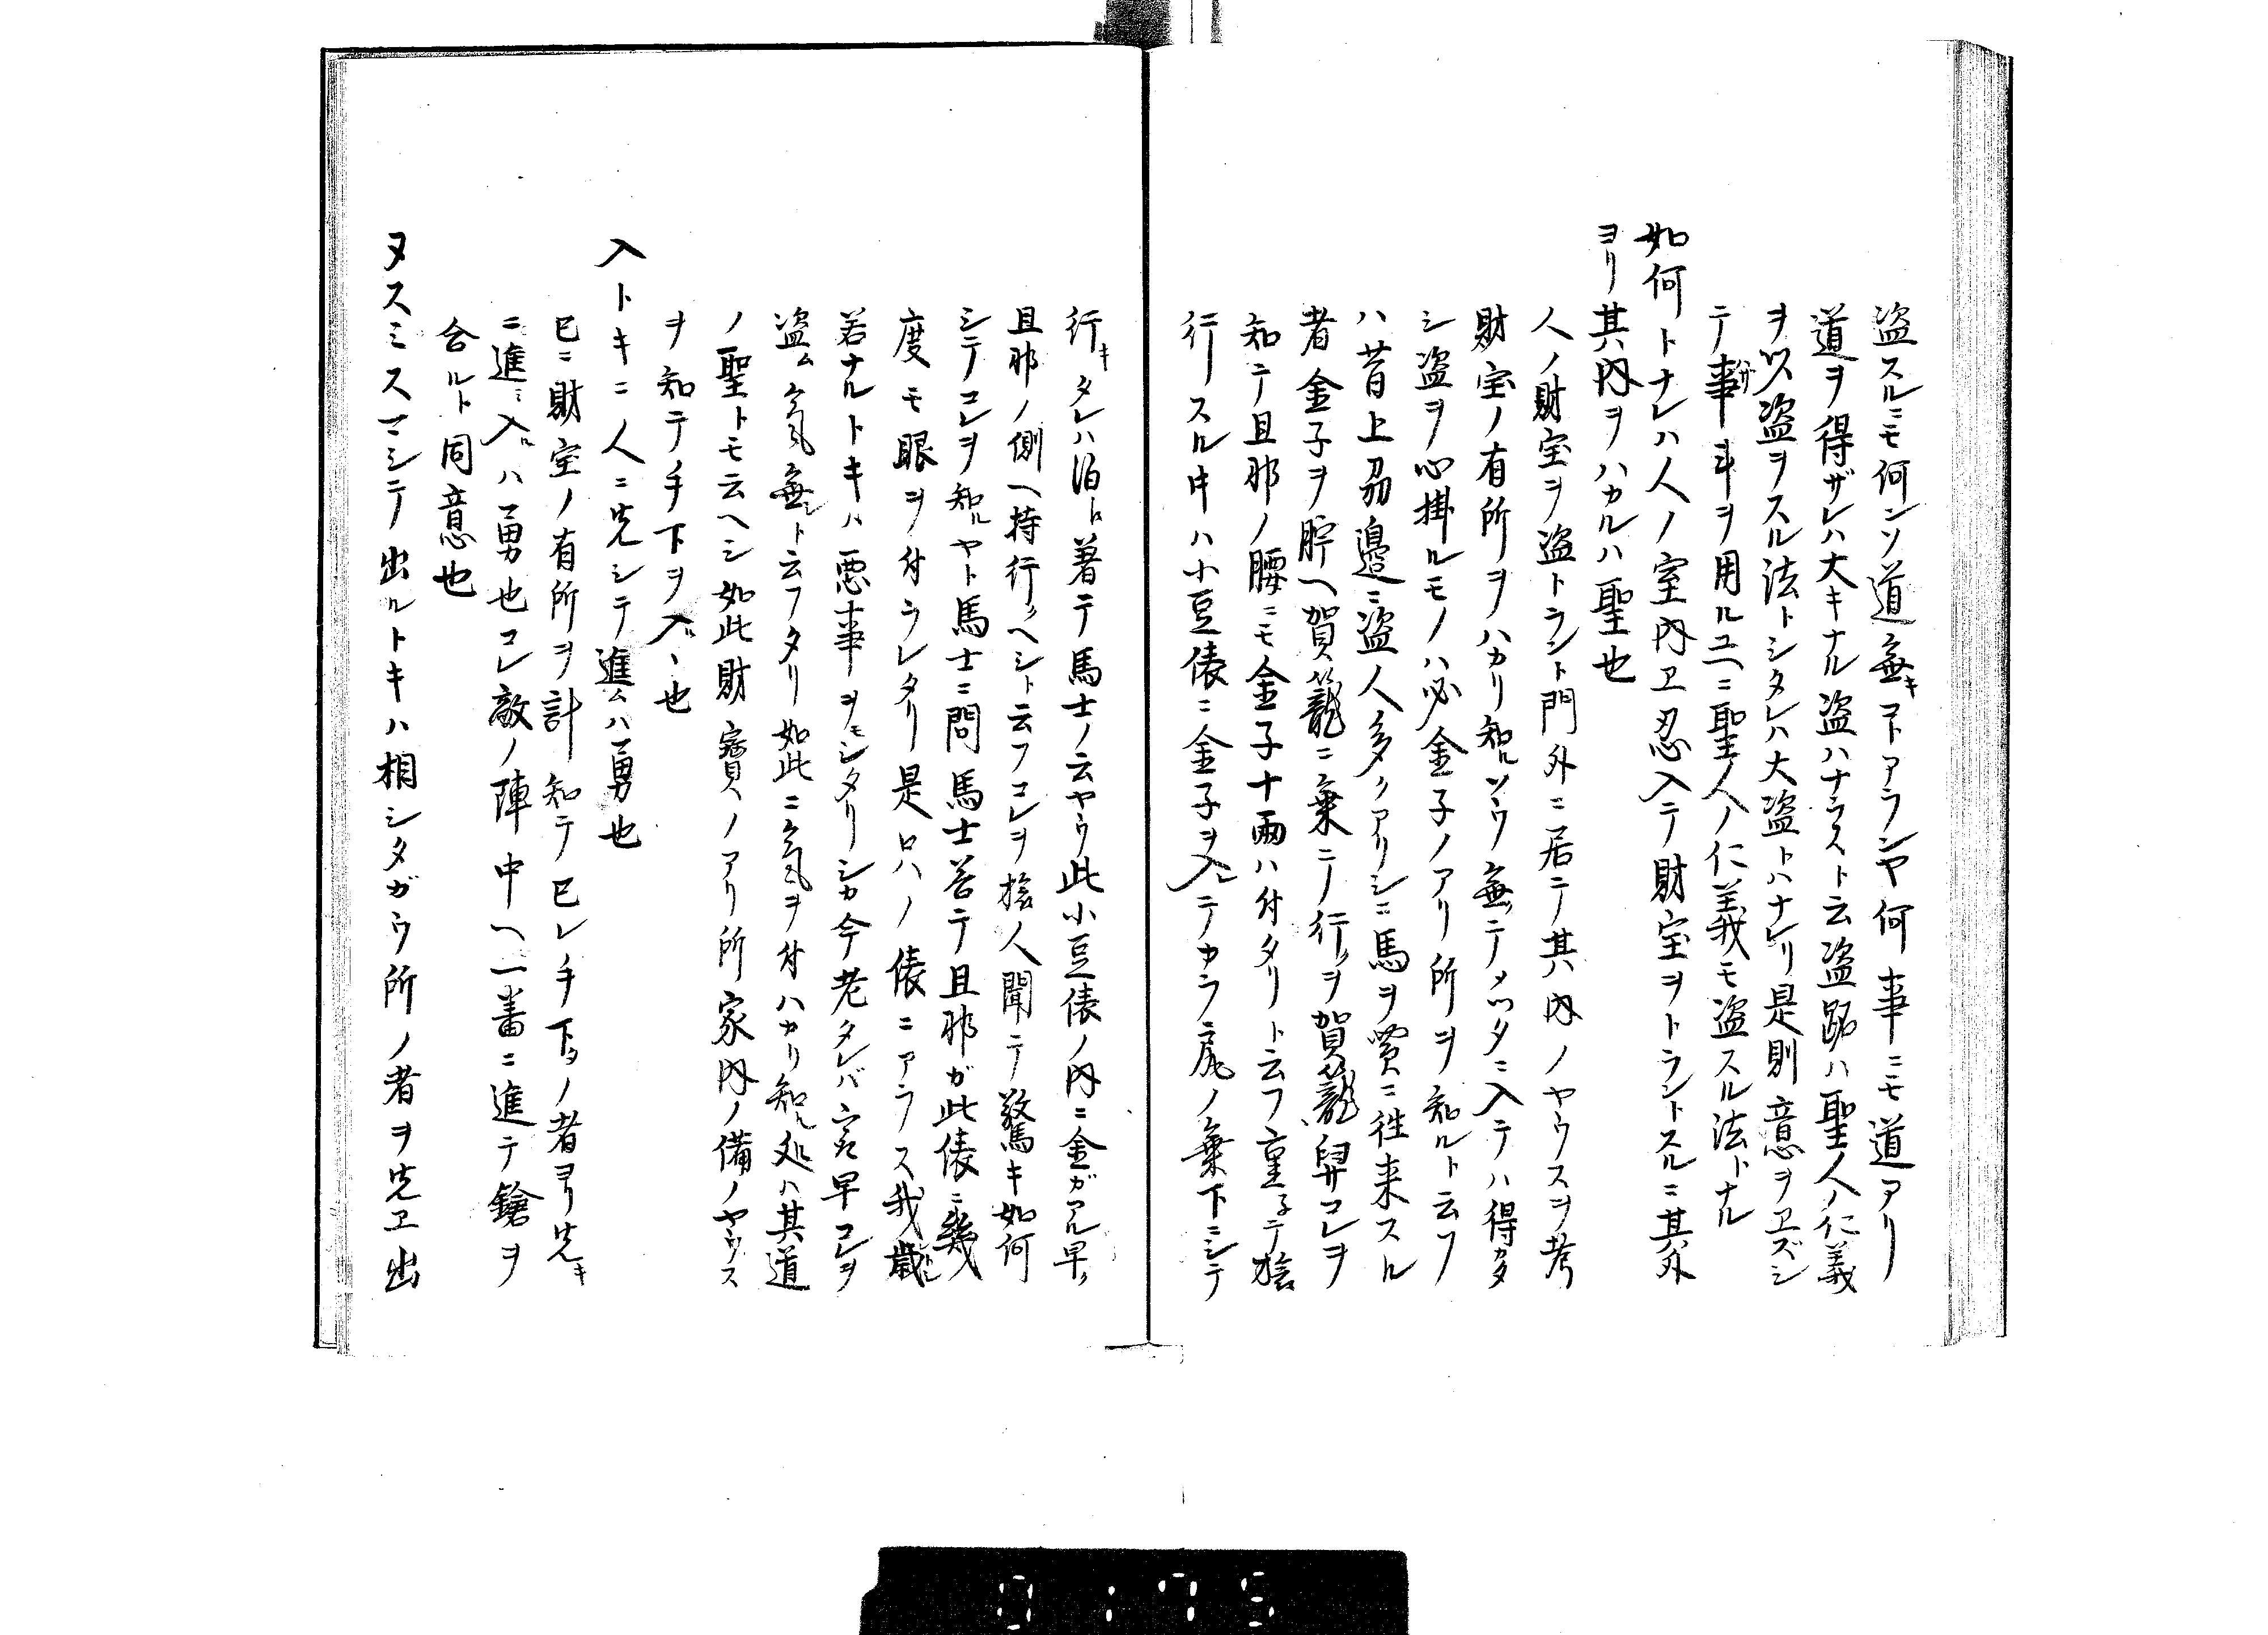 盗スルニモ何ンソ道無キヿアランヤ何事ニモ道アリ
道ヲ得ザレハ大キナル盗ハナラスト云盗跖ハ聖人ノ仁義
ヲ以盗ヲスル法トシタレハ大盗トハナレリ是則意ヲヱズシ
テ事斗ヲ用ルユヘニ聖人ノ仁義モ盗スル法トナル
如何トナレハ人ノ室内ヱ忍入テ財宝ヲトラントスルニ其外
ヨリ其内ヲハカルハ聖也
人ノ財宝ヲ盗トラント門外ニ居テ其内ノヤウスヲ考
財宝ノ有所ヲハカリ知ルソウ無テメツタニ入テハ得カタ
シ盗ヲ心掛ルモノハ必金子ノアリ所ヲ知ルト云フ
ハ昔上刕邉ニ盗人多クアリシニ馬ヲ買ニ往来スル
者金子ヲ腁ヘ賀籠ニ乗テ行クヲ賀籠舁コレヲ
知テ且那ノ腰ニモ金子十両ハ付タリト云フ重子テ旅
行スル中ハ小豆俵ニ金子ヲ入レテカラ尻ノ乗下ニシテ
行キタレハ泊ト着テ馬士ノ云ヤウ此小豆俵ノ内ニ金ガアル早ク
且那ノ側ヘ持行クヘシト云フコレヲ旅人聞テ驚キ如何
シテコレヲ知ルヤト馬士ニ問馬士荅テ且那ガ此俵ニ幾
度モ眼ヲ付ラレタリ是只ハノ俵ニアラス我歳シ
若ナルトキハ悪事ヲモシタリシカ今老タレバ最早コレヲ
盗ム気無シト云フタリ如此ニ気ヲ付ハカリ知ル処ハ其道
ノ聖トモ云ヘシ如此財寳ノアリ所家内ノ備ノヤウス
ヲ知テ手下ヲ入ルヽ也
入トキニ人ニ先シテ進ムハ勇也
已ニ財宝ノ有所ヲ計知テ已レ手下タノ者ヨリ先キ
ニ進ミ入ルハ勇也コレ敵ノ陣中ヘ一番ニ進テ鎗ヲ
合ルト同意也
ヌスミスマシテ出ルトキハ相シタガウ所ノ者ヲ先ヱ出